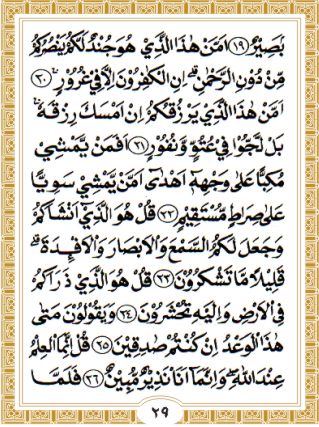 بَصِيۡرٌ ﴿۱۹﴾ اَمَّنۡ هٰذَا الَّذِىۡ هُوَ جُنۡدٌ لَّكُمۡ يَنۡصُرُكُمۡ
مِّنۡ دُوۡنِ الرَّحۡمٰنِ ؕ اِنِ الۡكٰفِرُوۡنَ اِلَّا فِىۡ غُرُوۡرٍ ۚ ﴿۲۰﴾
اَمَّنۡ هٰذَا الَّذِىۡ يَرۡزُقُكُمۡ اِنۡ اَمۡسَكَ رِزۡقَهٗ ۚ
بَلۡ لَّجُّوۡا فِىۡ عُتُوٍّ وَّنُفُوۡرٍ ﴿۲۱﴾ اَفَمَنۡ يَّمۡشِىۡ
مُكِبًّا عَلٰى وَجۡهِهٖۤ اَهۡدٰٓى اَمَّنۡ يَّمۡشِىۡ سَوِيًّا
عَلٰى صِرَاطٍ مُّسۡتَقِيۡمٍ ﴿۲۲﴾ قُلۡ هُوَ الَّذِىۡۤ اَنۡشَاَكُمۡ
وَجَعَلَ لَكُمُ السَّمۡعَ وَالۡاَبۡصَارَ وَالۡاَفۡـِٕدَةَ ؕ
قَلِيۡلًا مَّا تَشۡكُرُوۡنَ ﴿۲۳﴾ قُلۡ هُوَ الَّذِىۡ ذَرَاَكُمۡ
فِى الۡاَرۡضِ وَاِلَيۡهِ تُحۡشَرُوۡنَ ﴿۲۴﴾ وَيَقُوۡلُوۡنَ مَتٰى
هٰذَا الۡوَعۡدُ اِنۡ كُنۡتُمۡ صٰدِقِيۡنَ ﴿۲۵﴾ قُلۡ اِنَّمَا الۡعِلۡمُ
عِنۡدَ اللّٰهِ ۪ وَاِنَّمَاۤ اَنَا نَذِيۡرٌ مُّبِيۡنٌ ﴿۲۶﴾ فَلَمَّا
۲۹